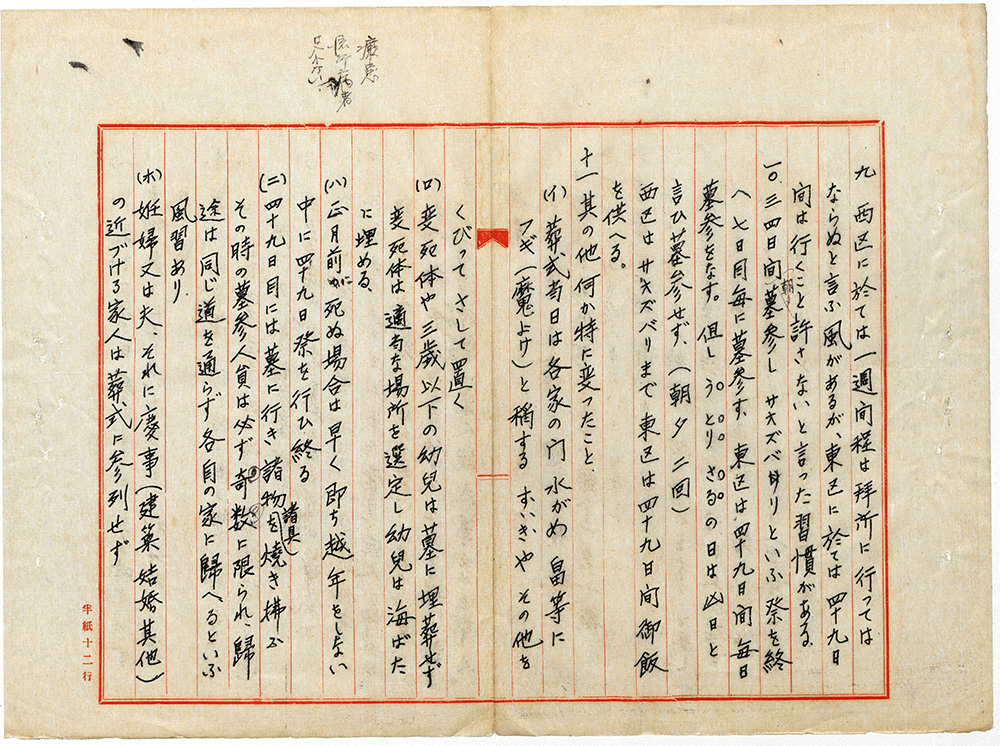 九 西区に於ては一週间程は拝所に行っては
ならぬと言ふ風があるが東区に於ては四十九日
间は行くこと許さないと言った習慣がある
一〇.三四日间朝墓参し サオズバリといふ祭を終
へ七日目毎に墓参す、東区は四十九日间毎日
墓参をなす。但し うし とり さるの日は凶日と
言ひ墓参せず、(朝夕二回)
西区は サオズバリまで 東区は四十九日间御飯
を供へる。
十一 其の他何か特に変ったこと
(イ) 葬式当日は各家の门 水がめ 畠等に
フギ(魔よけ)と稱する すゝきや その他を
くびって さして置く
(ロ) 変死体や三歳以下の幼児は墓に埋葬せず
変死体は適当な場所を選定し幼児は海ばた
に埋める、
(ハ) 正月前に死ぬ場合は早く即ち越年をしない
中に四十九日祭を行ひ終る
(ニ) 四十九日目には墓に行き諸物(諸具)を焼き拂ふ
その時の墓参人員は必ず奇数に限られ、歸
途は同じ道を通らず各自の家に歸へるといふ
風習あり
(ホ) 妊婦又は夫、それに慶事(建築、結婚其他)
の近づける家人は葬式に参列せず
半紙十二行